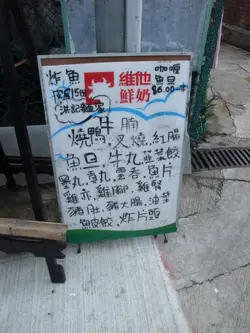 炸魚
洪記麵家
維他
鮮奶
咖喱
魚旦
$6.00一串
牛腩
燒鴨 叉燒 紅腸
魚旦 牛丸 韭菜餃
墨丸 貢丸 雲吞 魚片
雞亦 雞腳 雞腎
豬肚 豬大腸 油菜
魚皮餃 炸片頭